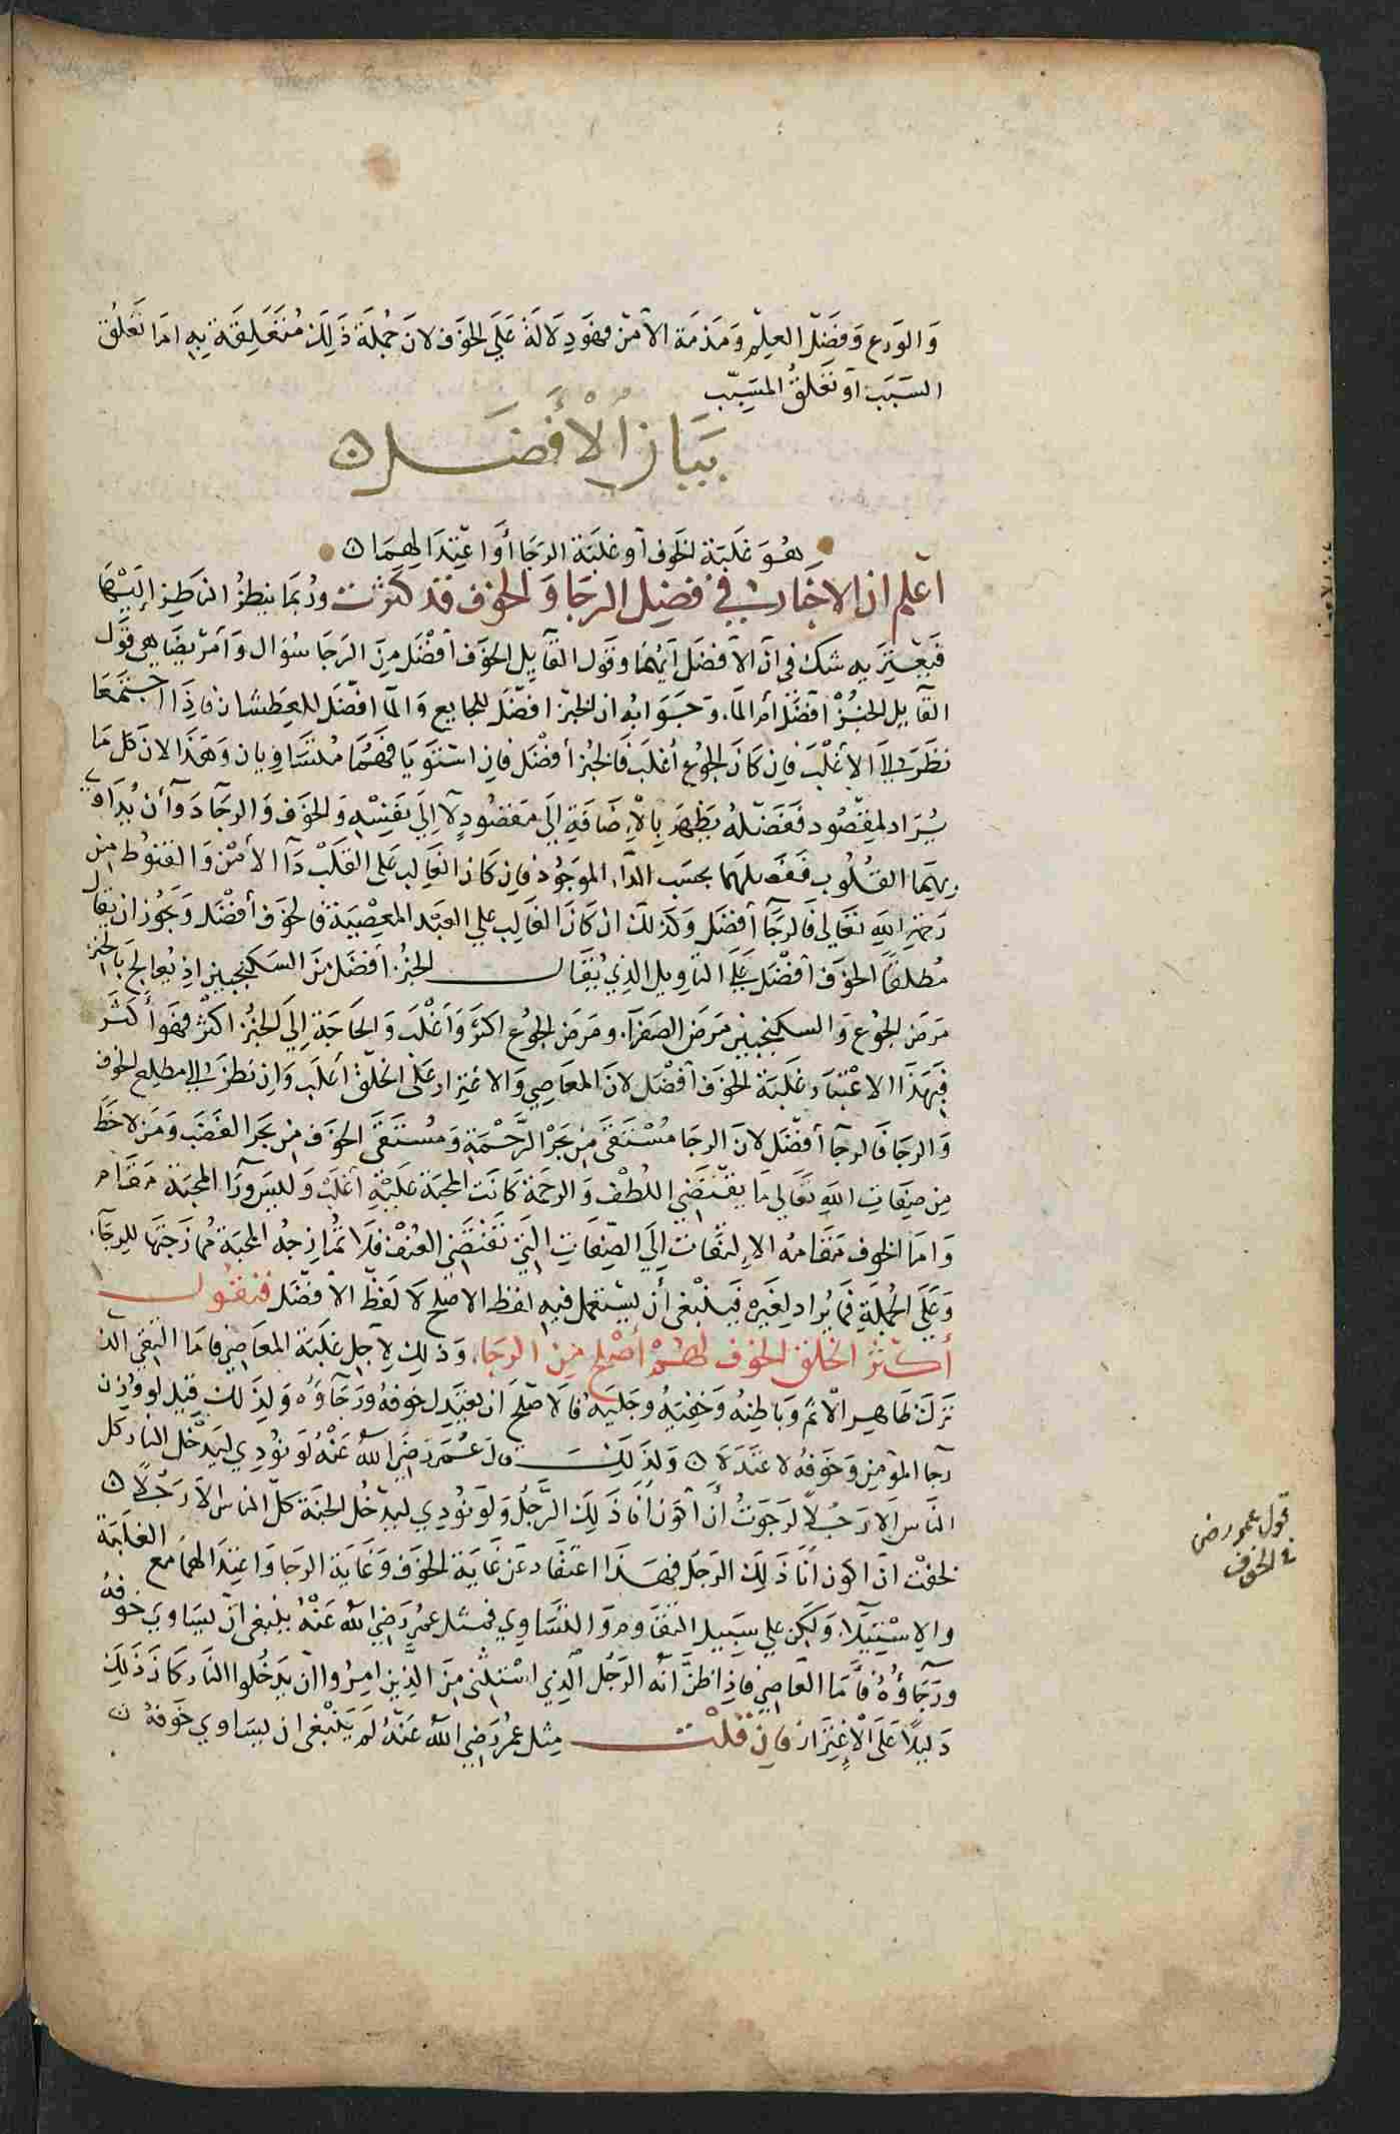 وَالوَرَع وَفَضْل العِلْم وَمَذمَة الأمْن فهوَ دِلَالَة عَلَي الخَوَف لانَ جُملَة ذَلِكَ مُتَعَلِقَة بِهِ امَا تَعَلُق
السَبَب اَو تَعَلقُ المسَبِّب
بَيَان الْأَفْضَل
هُوَ غَلَبَة الخَوف اَو غلبَة الرجَا أوَ اعتِدَالهِمَا
اعْلم ان الاخبار في فضل الرجَا وَ الخوف قد كثرت ورُبمَا ينظرُ الناظِر إليْهمَا
فَيَعْتَرِيه شك في ان الأفضَل ايّهُمَا وقول القآيل الخوَف أفْضَل مِنَ الرَجَا سُؤال وَأمَر يضَاهي قَول
القآيل الخُبزْ أفضَل أم المآء وَجَوَابهُ ان الخبز افضَل للجايع وَالمآ افضَل للعَطشان فاذَا اجتَمَعَا
نظَرَ الي الأغلَب فإن كَانَ الجُوع أغلَب فَالخُبز أفضْل فان اسْتوَيَا فهمَا مُتسَاوِيان وَهَذَا لان كل مَا
يُرَاد لمقصُود ففَضلهُ يظهَر بِالإضَافَةِ إلَي مَقصُودِهِ لآ إلَي نفسِهِ وَالخوَف وَالرجَآ دَوآأن يُدَاوَي
بهِمَا القلُوب ففضلهمَا بحسَب الدآء الموَجُود فإن كَان الغَالب علي القلَب دَآ الأمْن وَالقنوُط مِن
رَحمَةِ اللهِ تعَالي فَالرجَآ أفضَل وَكَذلكَ ان كَانَ الغَالِب علي العَبْد المعْصِيَة فالخوَف أفضْل وَيجُوز ان يقَال
مُطلقًا الخوَف أفضَل عَلَي التاوِيل الذِي يُقَال الخبزُ أفضَل مِنَ السكنجبين اذ يُعَالج بَالخبز
مَرَض الجُوع وَالسكنجبين مَرَض الصَفرآء ومَرَض الجُوع اكثَر وَأغْلب وَالحَاجَة إلَي الخبُز اكثرْ فهَو أكثَر
فَبهَذَا الاعْتبَار غَلبَة الخوَف أفضْل لانَ المعَاصِي وَالاغترار عَلَى الخلق أغلَب وَإن نظرَ الي مَطلع الخوف
وَالرجَا فَالرجآ أفضَل لانَ الرجَا مُسْتَقَى مِن بَحَر الرَّحْمَةِ وَمُسْتَقَى الخوَف مِن بَحَر الغَضَب وَمَن لاحَظَ
مِن صِفَاتِ اللهِ تعَالي مَا يقتَضِي اللُطْف وَالرحمَة كَانَت المحبَة عَليْهِ أغلَب وَليسَ وَرَآ المحبَة مَقَام
وَامَا الخوف مَقَامهُ الإلتفَات إلَي الصِفَاتِ التي تقتَضِي العُنفْ فلَا تمُازِجهُ المحبَة ممُازَجتهَا للرجَآء
وَعَلَي الجُملَةِ فمَا يُرَاد لِغَيِره فَينبْغي أن يستعمل فيهِ لفظ الاصْلح لَا لَفظ الأفضَل فنقول
أكثرُ الخلق الخوف لهُمْ أصْلح مِنَ الرجَاء وَذلِكَ لِأجل غلبَة المعَاصِي فامَا التقي الذي
تَرَك ظاهِر الإثم وَبَاطِنه وَخفِيَه وجَليَه فالَاصْلح ان يعتدِل خوفهُ ورَجَآؤه وَلذَلك قيل لَو وُزن
رجآ المؤمِن وَخَوَفُه لاعتَدَلَا وَلذَلِكَ قال عُمَر رَضِيَ اللهُ عَنْهُ لَو نُودِي ليَدْخل النار كل
النَاسِ إلَا رَجُلاً لرَجَوَتُ أَنْ أكوَن أنَا ذَلِكَ الرَّجُل وَلو نُودي ليَدْخُل الجنَة كلّ الناسِ إلَا رَجُلاً
لخفتْ أن أكون أنَا ذَلِكَ الرَجُل فهَذَا اعتقَاد عَن غَايَة الخوَف وَغَايَة الرجَا وَاعتِدَالهمَا مَع الغلَبَة
والاسْتِيلآء وَلكِن علي سَبيل التقَاومِ وَالتسَاوِي فمثل عمُر رَضِيَ اللهُ عَنْهُ ينبغي ان يُسَاوِي خَوفهُ
ورَجَآؤُهُ فأمَا العَاصِي فاذِا ظنَّ انه الرَجُل الذِي اسْتثنِي مِنَ الذِينَ امِرُوا ان يَدخُلوا النَار كَانَ ذَلِكَ
دَليلاً عَلَى الاِغتِرَار فإن قلْت مِثل عمُر رَضِيَ اللهُ عَنْهُ لَم يَنْبغي ان يسَاوي خَوَفهُ
قول عمر رض
في الخوف